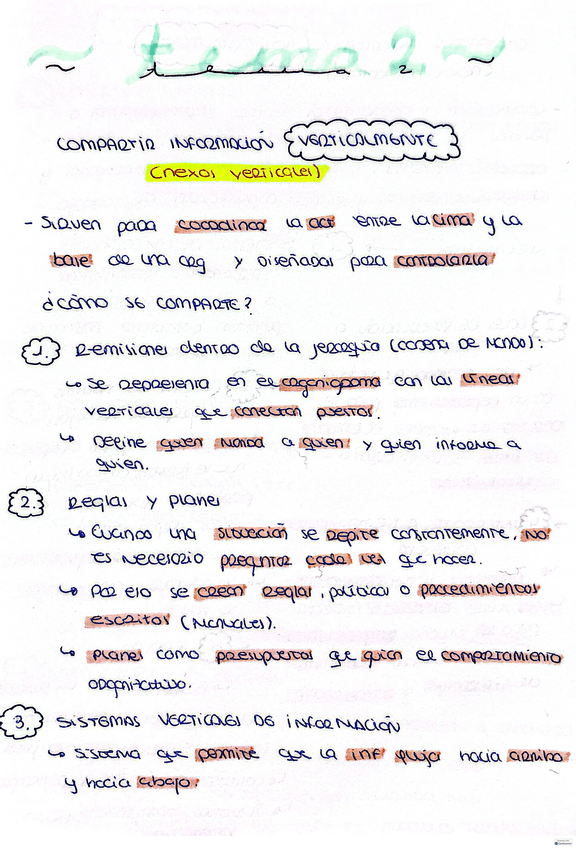 ~ tema 2 ~
~ tema 2
COMPARTIR INFORMACIÓN VERTICALMENTE
(nexos verticales)
- Sirven para coordinar la act entre la cima y la
base de una org y diseñados para controlarla
¿CÓMO SE COMPARTE?
1. Remisiones dentro de la jerarquía (CADENA DE MANDO):
↳ Se representa en el organigrama con las líneas
verticales que conectan puestos.
↳ Define quien manda a quien y quien informa a
quien.
2. Reglas y planes
↳ Cuando una situación se repite constantemente, no
es necesario preguntar cada vez que hacer.
↳ Por eso se crean reglas, políticas o procedimientos
escritos (Manuales).
↳ Planes como presupuestos que guían el comportamiento
organizativo.
3. SISTEMAS VERTICALES DE INFORMACIÓN
↳ Sistema que permite que la inf fluja hacia arriba
y hacia abajo.